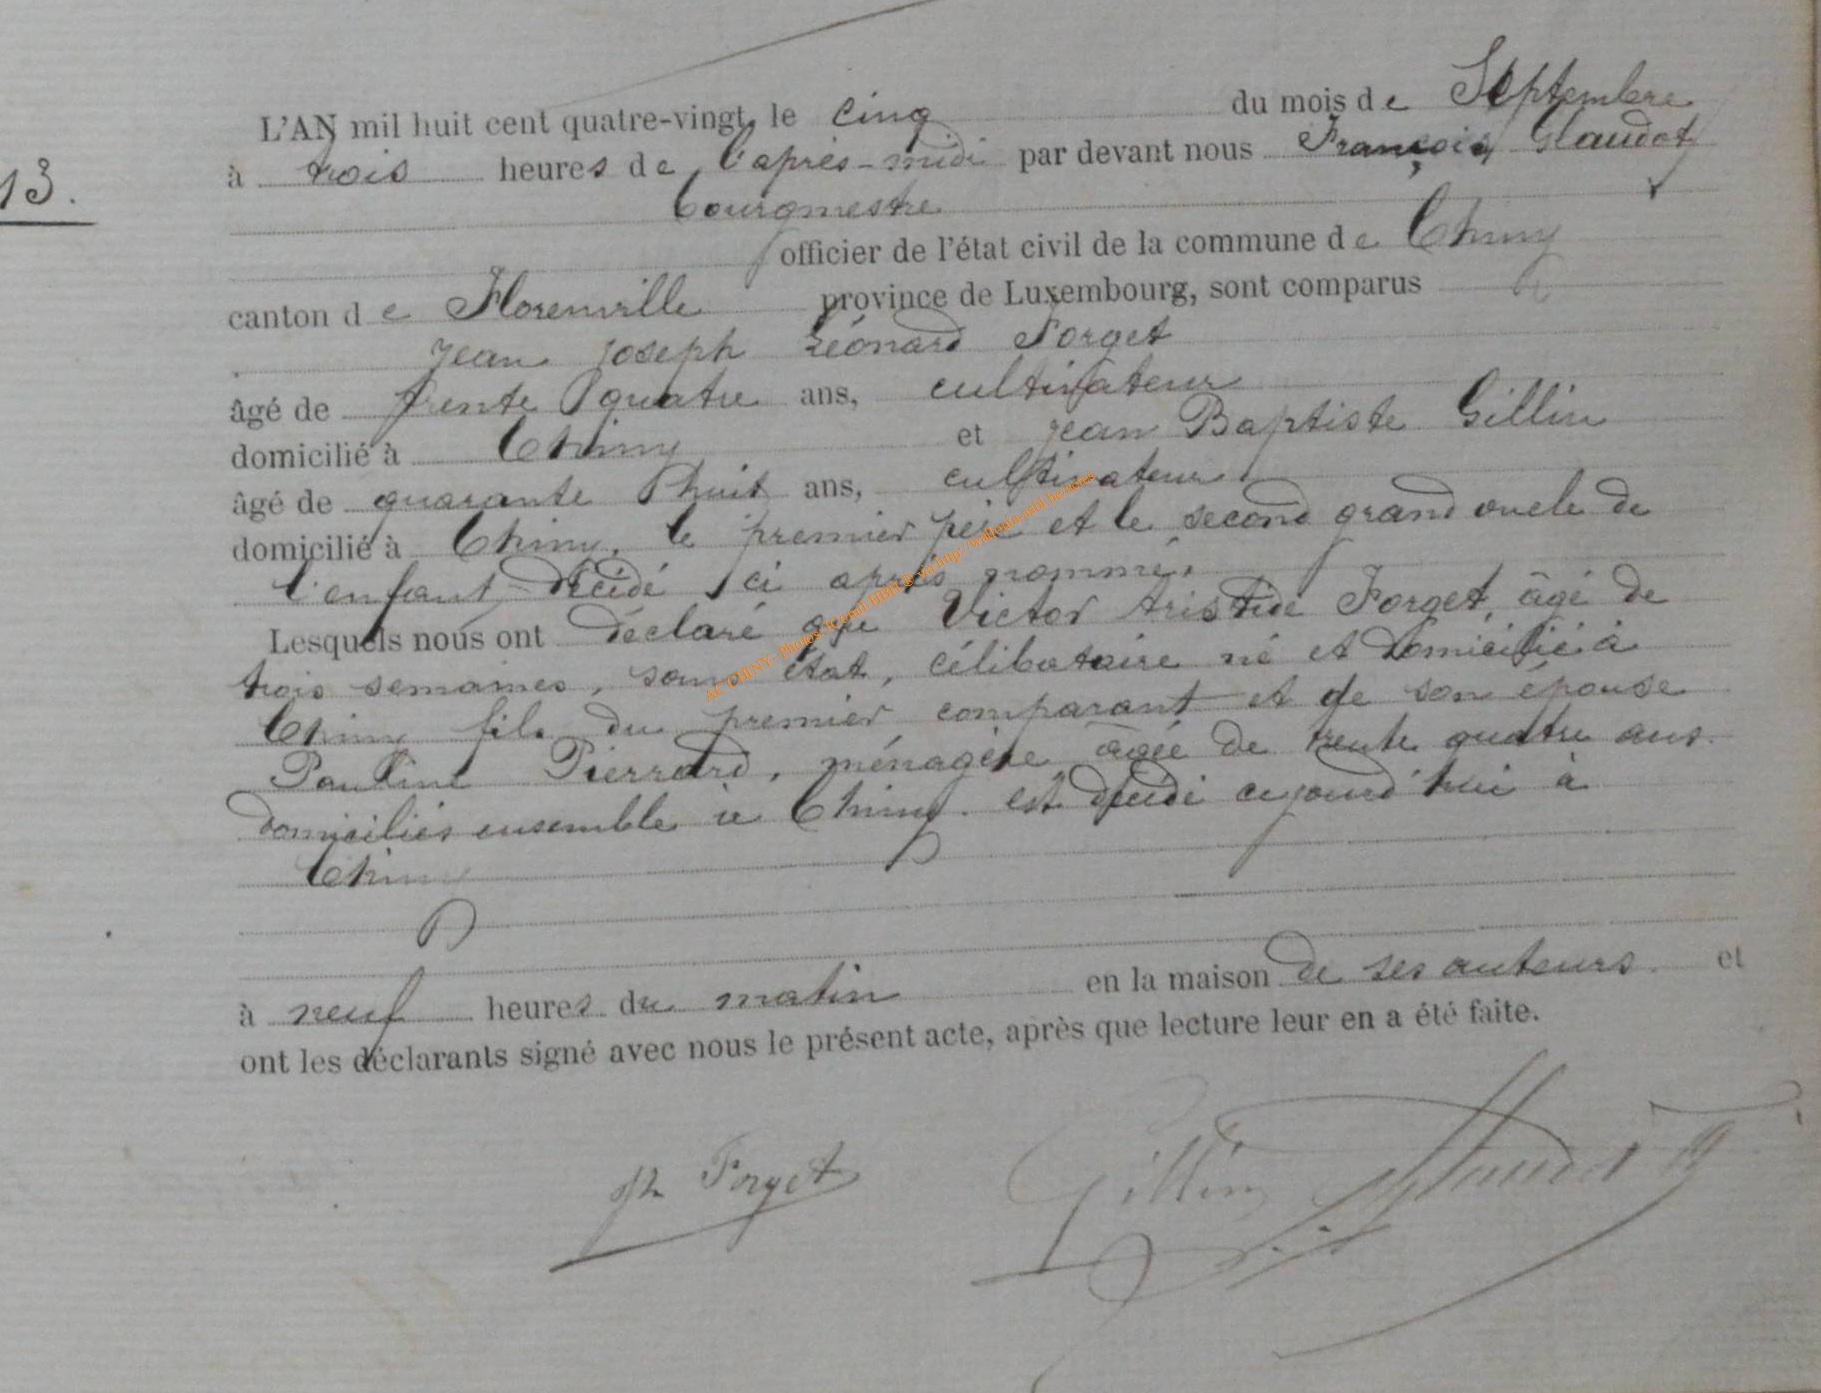 L'AN mil huit cent quatre-vingt, le cinq du mois de Septembre
13.
à trois heures de l'après-midi par devant nous François Glaudot
bourgmestre
officier de l'état civil de la commune de Chiny
canton de Florenville province de Luxembourg, sont comparus
Jean Joseph Léonard Forget
âgé de trente quatre ans, cultivateur
domicilié à Chiny et Jean Baptiste Gillin
âgé de quarante huit ans, cultivateur
domicilié à Chiny, le premier père et le second grand oncle de
l'enfant décédé ci après nommé.
Lesquels nous ont déclaré que Victor Aristide Forget, âgé de
trois semaines, sans état, célibataire né et domicilié à
Chiny fils du premier comparant et de son épouse
Pauline Pierrard, ménagère âgée de trente quatre ans.
domiciliés ensemble à Chiny. est décédé aujourd'hui à
Chiny
à neuf heures du matin en la maison de ses auteurs. et
ont les déclarants signé avec nous le présent acte, après que lecture leur en a été faite.
Forget Gillin Glaudot